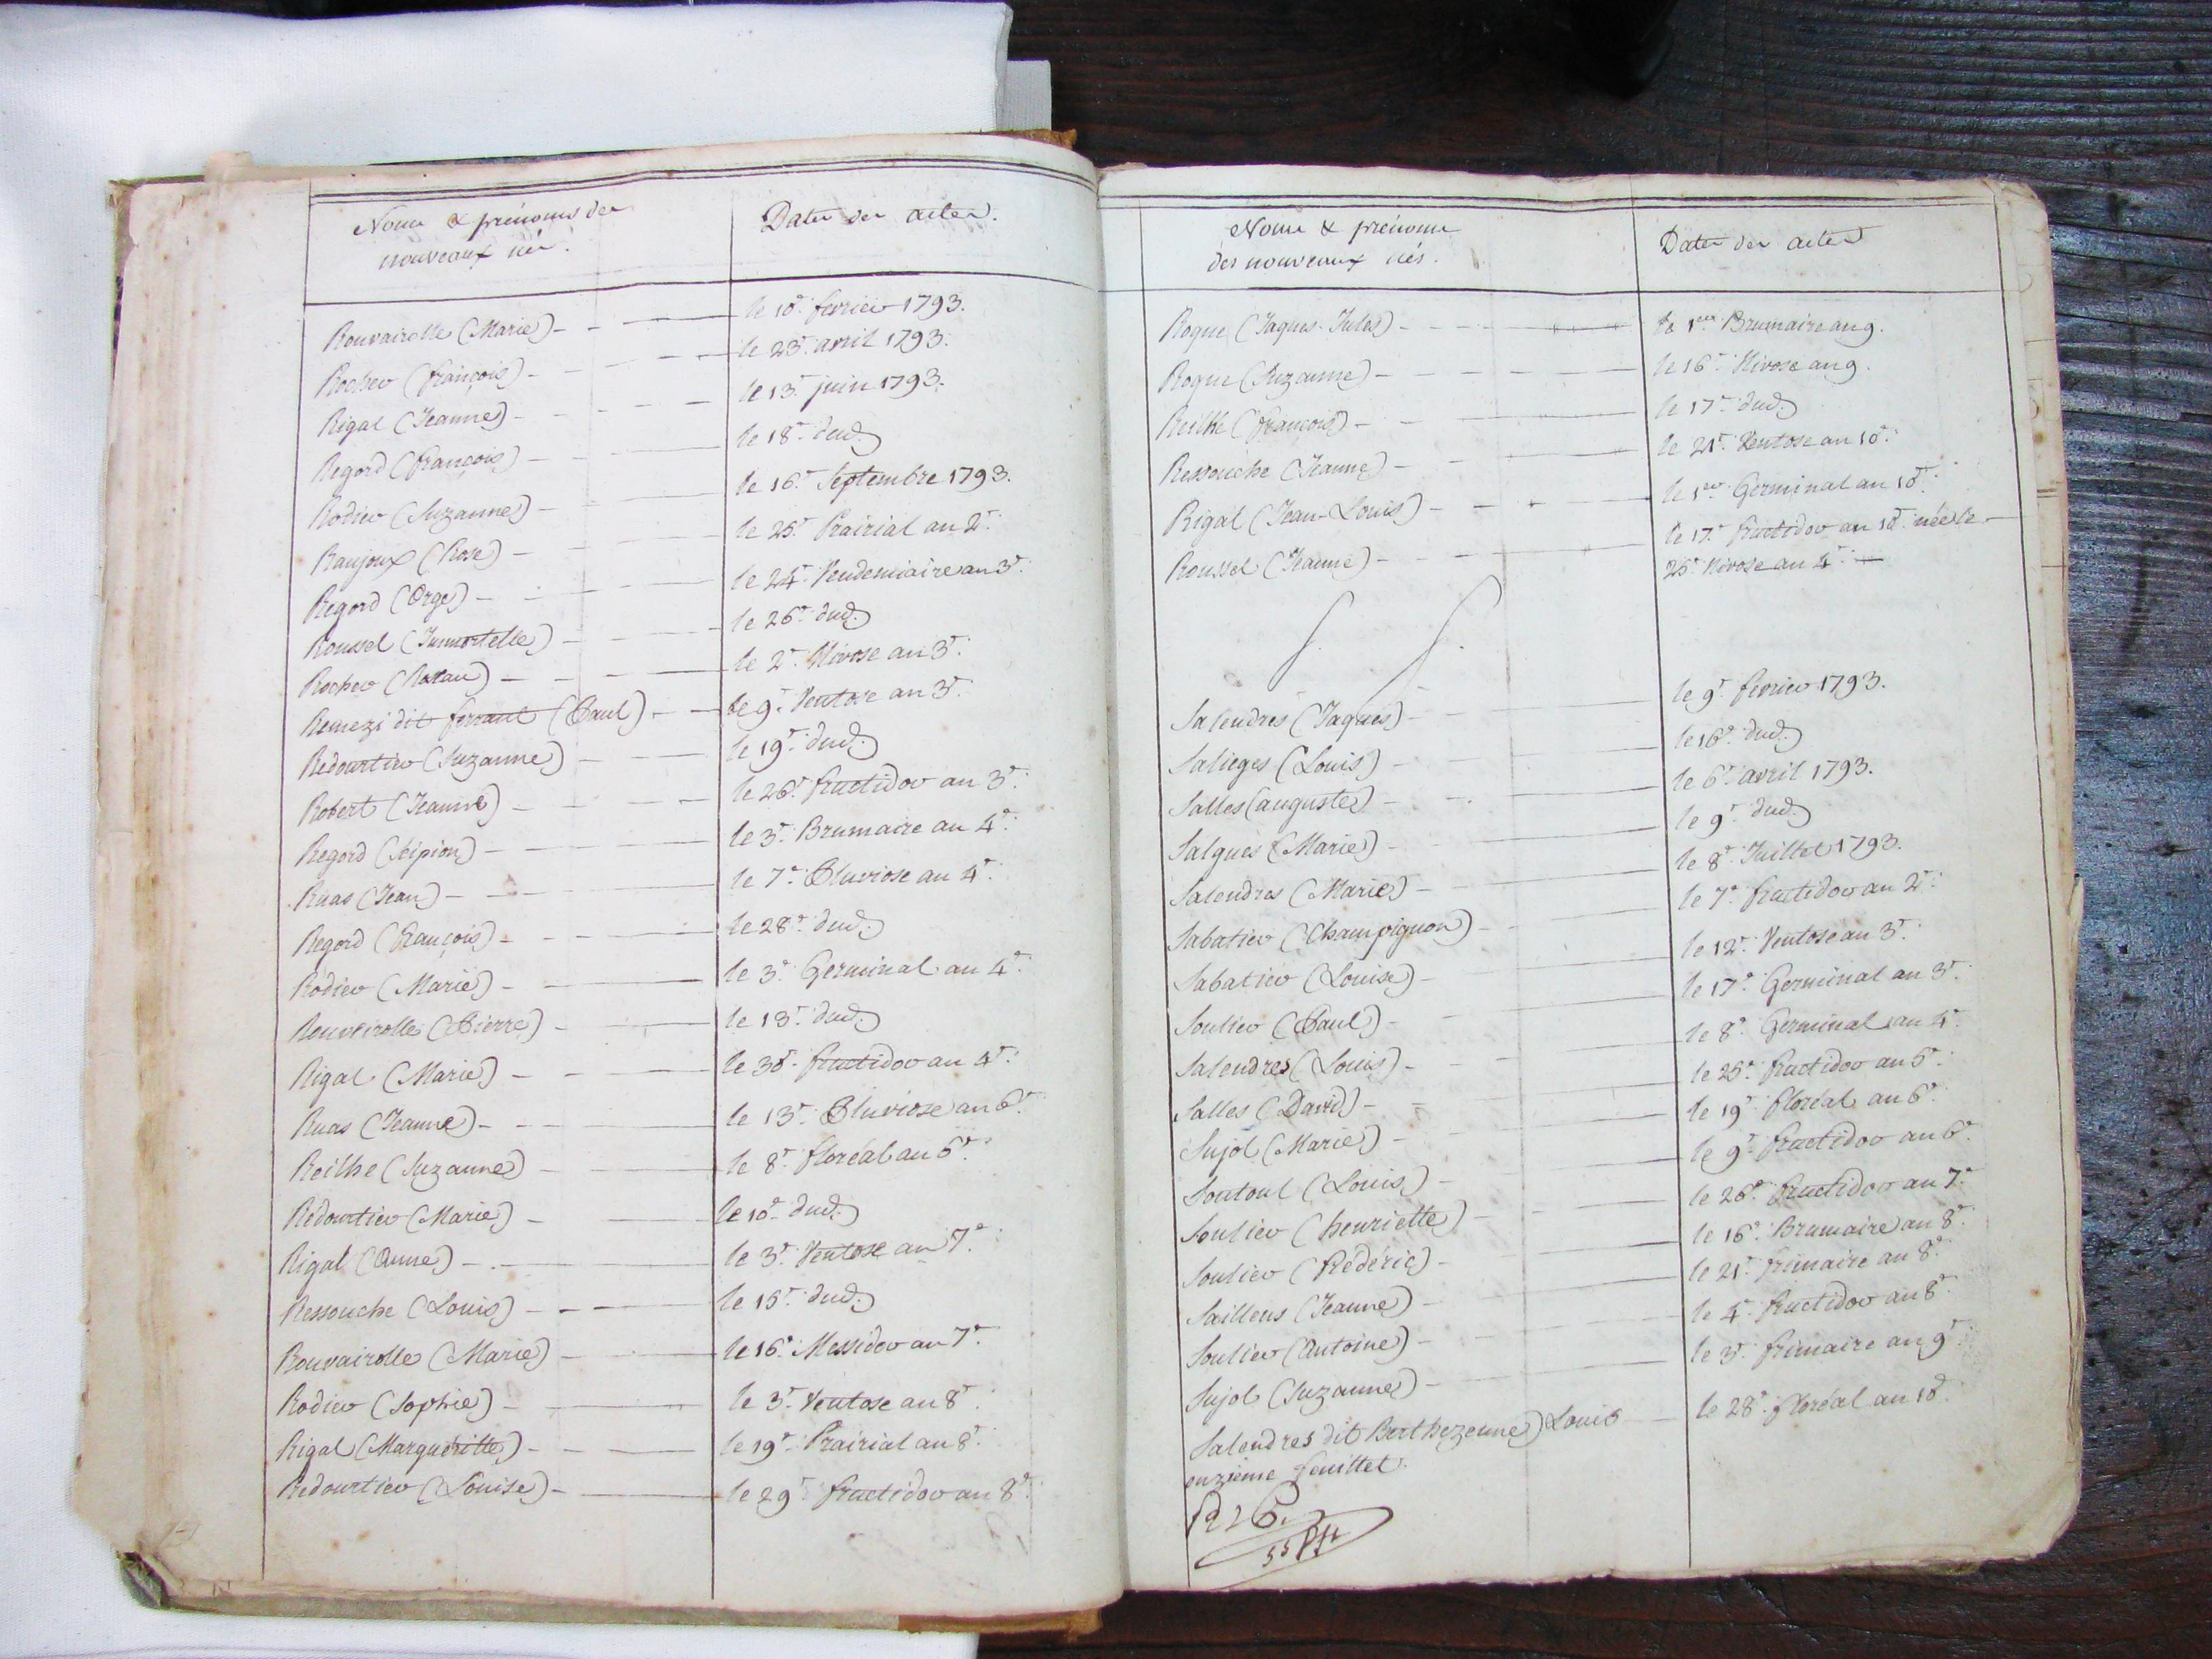 Noms & prénoms des
nouveaux nés.
Dates des actes.
Rouvairolle (Marie) - le 10e. fevrier 1793.
Rocher (françois) - le 23e. avril 1793.
Rigal (Jeanne) - le 13e. juin 1793.
Regord (françois) - le 18e. dud.
Rodier (Suzanne) - le 16e. Septembre 1793.
Raujoux (Rose) - le 25e. Prairial an 2e.
Regord (Orge) - le 24e. Vendemiaire an 3e.
Roussel (Immortelle) - le 26e. dud.
Rocher () - le 2e. Nivose an 3e.
Remezi dit ferrant (Paul) - le 9e. Ventose an 3e.
Redourtier (Suzanne) - le 19e. dud.
Robert (Jeanne) - le 26e. fructidor an 3e.
Regord (Scipion) - le 3e. Brumaire an 4e.
Ruas (Jean) - le 7e. Pluviose an 4e.
Regord (françois) - le 28e. dud.
Rodier (Marie) - le 3e. Germinal an 4e.
Rouveirolle (Pierre) - le 13e. dud.
Rigal (Marie) - le 30e. fructidor an 4e.
Ruas (Jeanne) - le 13e. Pluviose an 6e.
Reilhe (Suzanne) - le 8e. floréal an 6e.
Redourtier (Marie) - le 10e. dud.
Rigal (Anne) - le 3e. Ventose an 7e.
Ressouche (Louis) - le 15e. dud.
Rouvairolle (Marie) - le 16e. Messidor an 7e.
Rodier (Sophie) - le 3e. Ventose an 8e.
Rigal (Marguéritte) - le 19e. Prairial an 8e.
Redourtier (Louise) - le 29e. fructidor an 8e.
Noms & prénoms
des nouveaux nés.
Dates des actes
Roque (Jaques-Jules) - le 1er. Brumaire an 9.
Roque (Suzanne) - le 16e. Nivose an 9.
Reilhe (françois) - le 17e. dud.
Ressouche (Jeanne) - le 21e. Ventose an 10e.
Rigal (Jean-Louis) - le 1er. Germinal an 10e.
Roussel (Jeanne) - le 17e. fructidor an 10e. née le
25e. Nivose an 4e.
S. S.
Salendres (Jaques) - le 9e. fevrier 1793.
Salieges (Louis) - le 16e. dud.
Salles (auguste) - le 6e. avril 1793.
Salgues (Marie) - le 9e. dud.
Salendres (Marie) - le 8e. Juillet 1793.
Sabatier (Champignon) - le 7e. fructidor an 2e.
Sabatier (Louise) - le 12e. Ventose an 3e.
Soulier (Paul) - le 17e. Germinal an 3e.
Salendres (Louis) - le 8e. Germinal an 4e.
Salles (David) - le 25e. fructidor an 5e.
Sujol (Marie) - le 19e. floréal an 6e.
Soutoul (Louis) - le 9e. fructidor an 6e.
Soulier (henriette) - le 26e. fructidor an 7e.
Soulier (frédéric) - le 16e. Brumaire an 8e.
Saillens (Jeanne) - le 21e. frimaire an 8e.
Soulier (Antoine) - le 4e. fructidor an 8e.
Sujol (Suzanne) - le 3e. frimaire an 9e.
Salendres dit Berthezenne) Louis - le 28e. floréal an 10e.
onzieme feuillet.